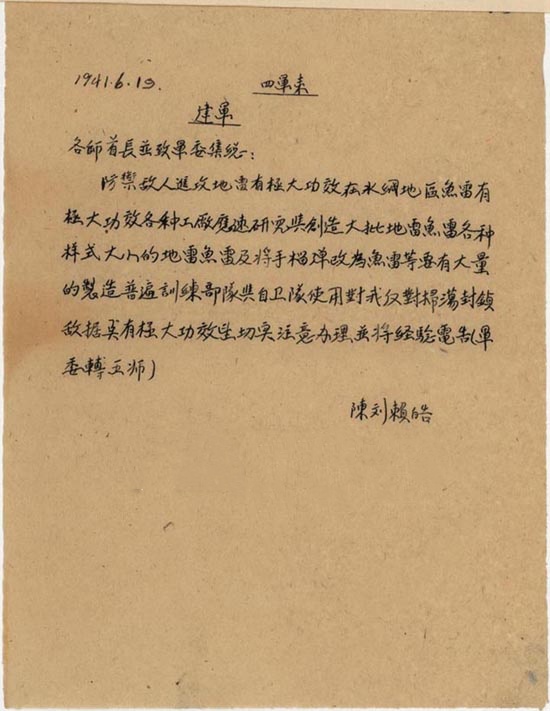 1941.6.19. 四軍来
建軍
各師首長並致軍委集総:
防禦敌人進攻地雷有極大功效在水網地區魚雷有
極大功效各种工廠應速研究與創造大批地雷魚雷各种
样式大小的地雷魚雷及将手榴弹改為魚雷等要有大量
的製造普遍訓練部隊與自卫隊使用對我仅對掃蕩封鎖
敌据奌有極大功效望切实注意办理並将经验電告(軍
委轉五师)
陳刘賴皓